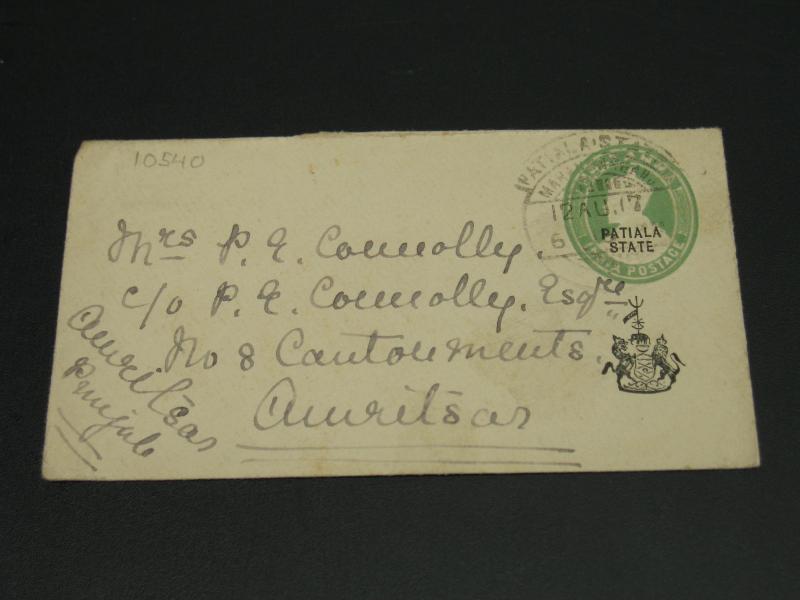 10540
PATIALA STATE
12 AU. 17
6
PATIALA
STATE
INDIA POSTAGE
Mrs P. E. Connolly.
c/o P. E. Connolly. Esqre
No 8 Cantonments.
Amritsar
Amritsar
Punjab